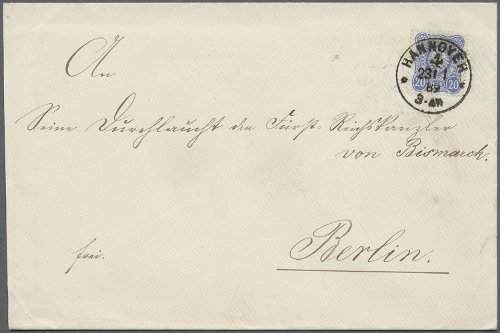 HANNOVER
23 / 1
89
3-4N
20 20
An
Seine Durchlaucht den Fürst-Reichskanzler
von Bismarck.
frei.
Berlin.